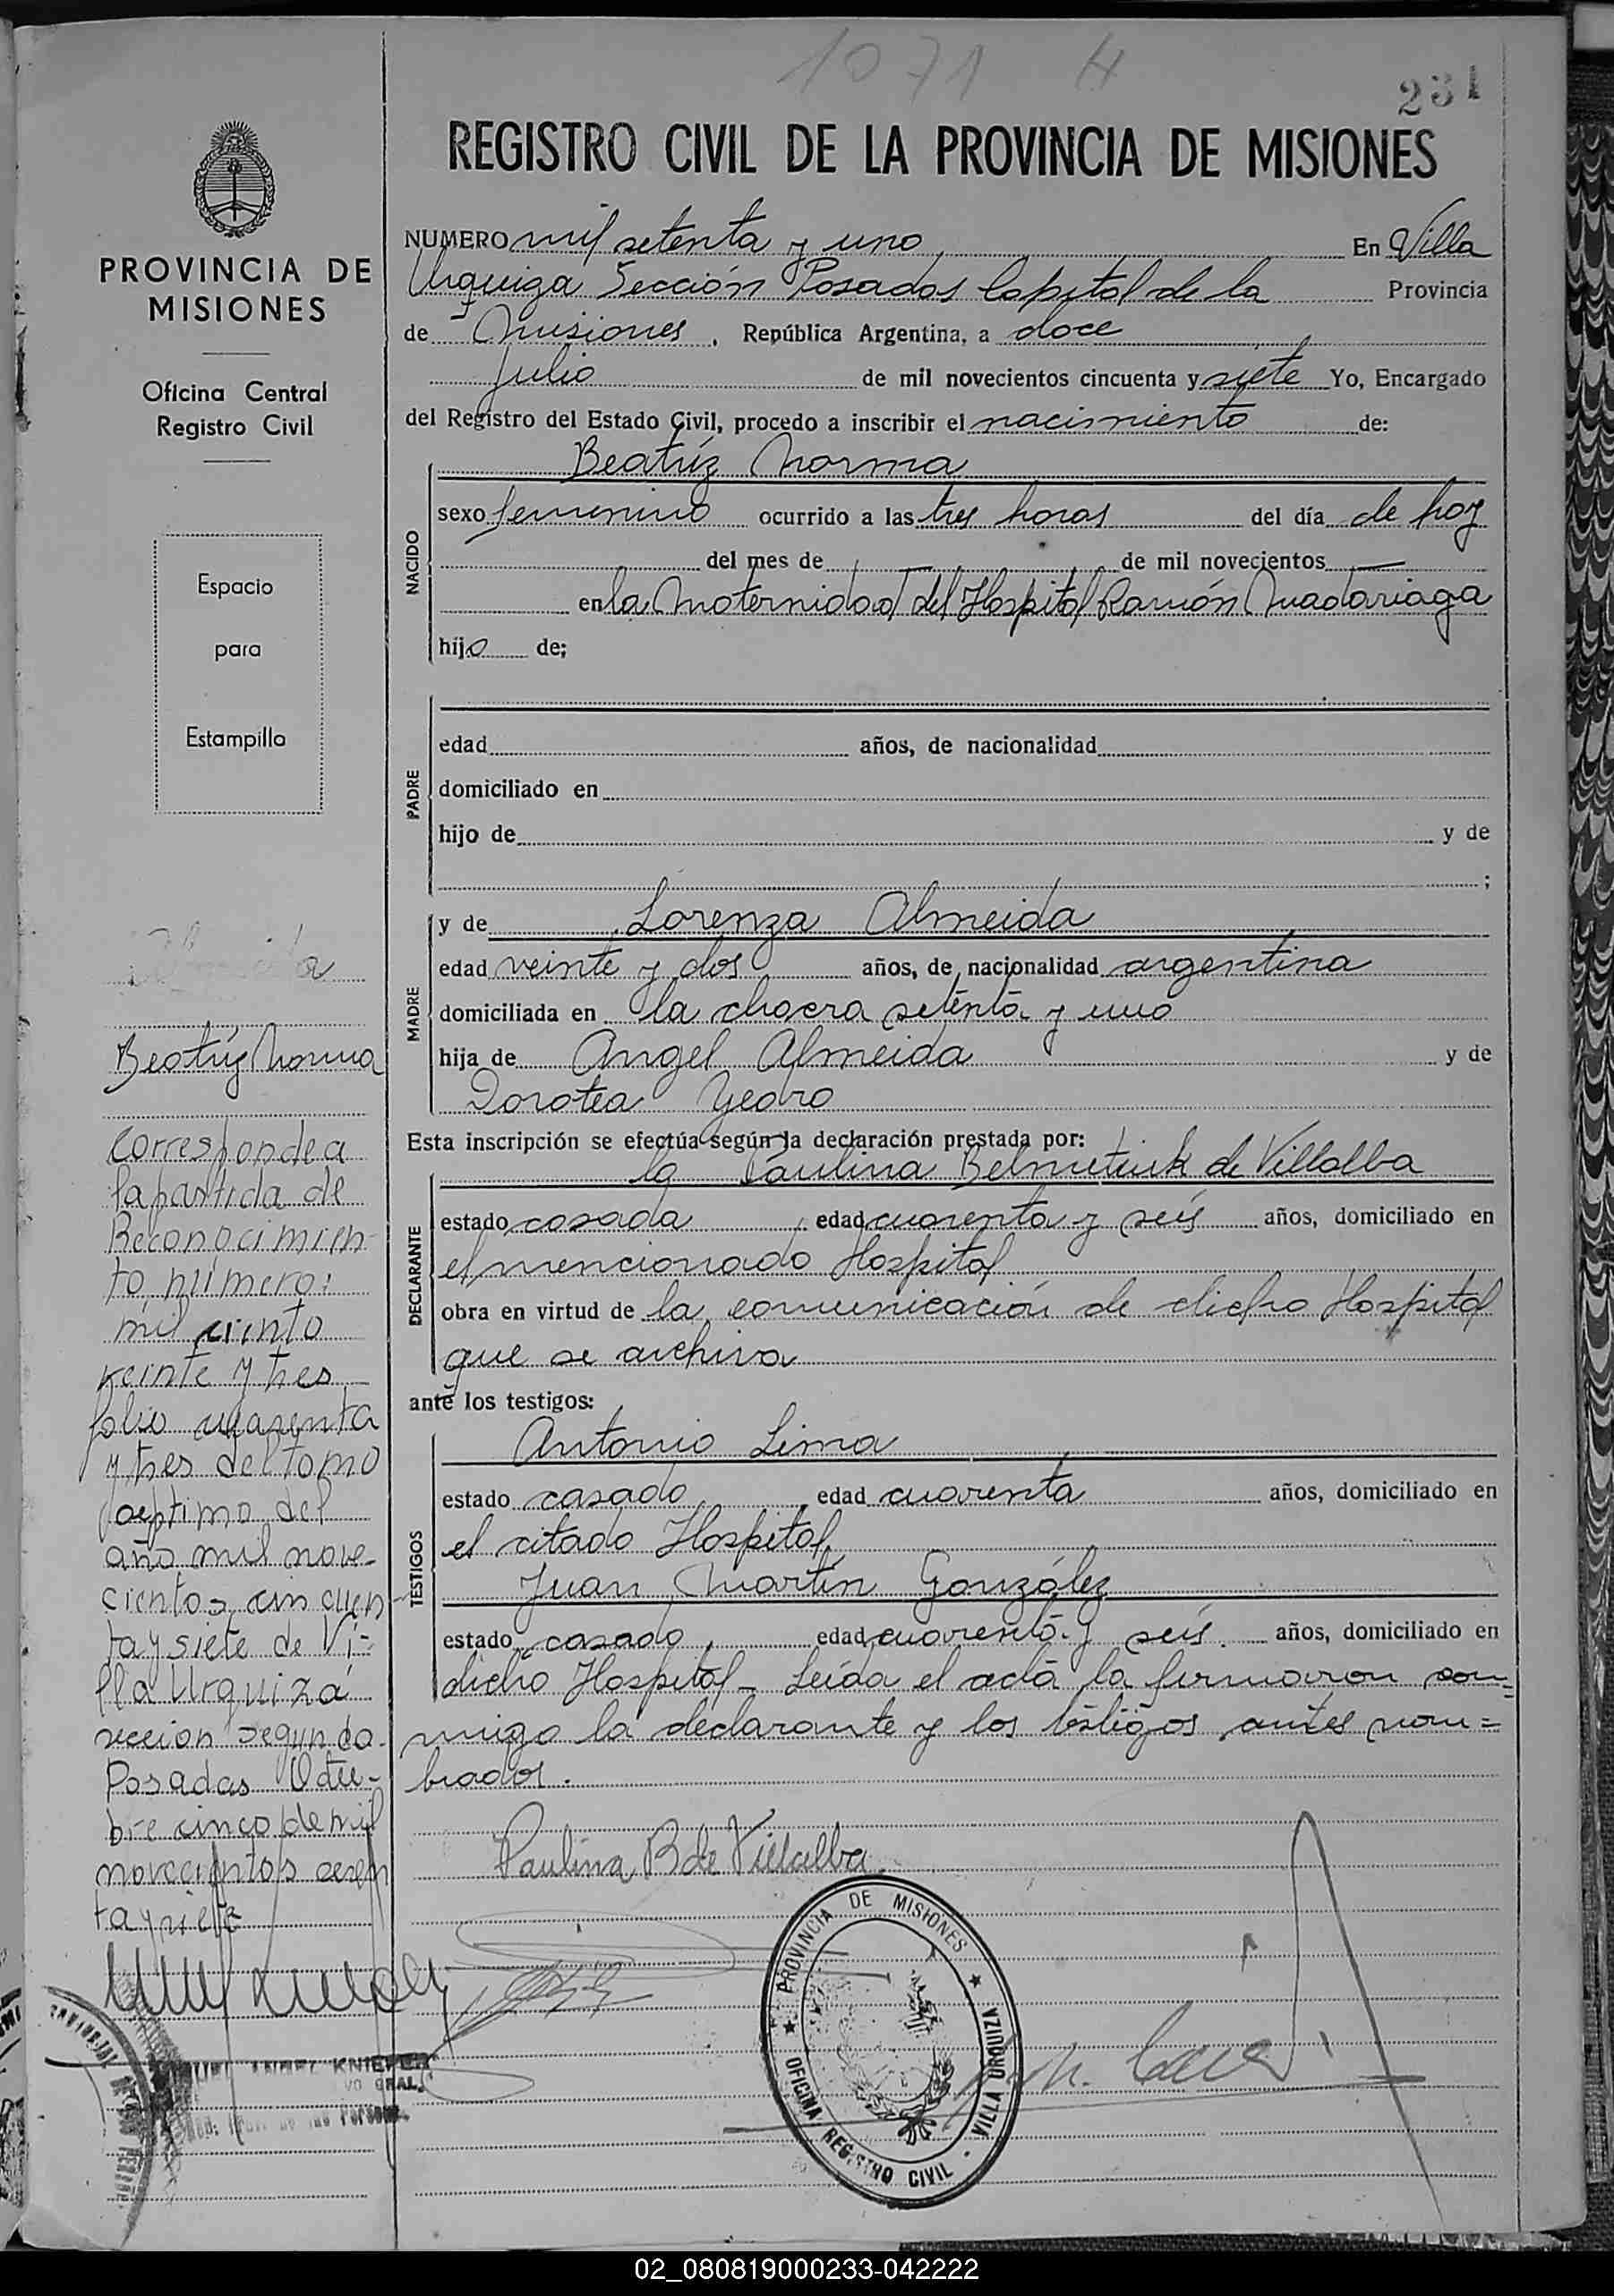 1071 H
231
REGISTRO CIVIL DE LA PROVINCIA DE MISIONES
PROVINCIA DE
MISIONES
Oficina Central
Registro Civil
Espacio
para
Estampilla
Beatríz Norma
Corresponde a
la partida de
Reconocimien-
to número:
mil ciento
veinte y tres
folio cuarenta
y tres del tomo
septimo del
año mil nove-
cientos cincuen-
ta y siete de Vi-
lla Urquiza
seccion segunda.
Posadas Octu-
bre cinco de mil
novecientos sesen
ta y siete
NUMERO mil setenta y uno En Villa
Urquiza Sección Posadas Capital de la Provincia
de Misiones, República Argentina, a doce
Julio de mil novecientos cincuenta y siete Yo, Encargado
del Registro del Estado Civil, procedo a inscribir el nacimiento de:
Beatríz Norma
NACIDO
sexo femenino ocurrido a las tres horas del día de hoy
del mes de de mil novecientos
en la Maternidad del Hospital Ramón Madariaga
hija de;
PADRE
edad años, de nacionalidad
domiciliado en
hijo de y de
;
MADRE
y de Lorenza Almeida
edad veinte y dos años, de nacionalidad argentina
domiciliada en la chacra setenta y uno
hija de Angel Almeida y de
Dorotea Yedro
Esta inscripción se efectúa según la declaración prestada por:
la Paulina de Villalba
DECLARANTE
estado casada, edad cuarenta y seis años, domiciliado en
el mencionado Hospital
obra en virtud de la comunicación de dicho Hospital
que se archiva
ante los testigos:
TESTIGOS
Antonio Lima
estado casado, edad cuarenta años, domiciliado en
el citado Hospital
Juan Martín González
estado casado, edad cuarenta y seis. años, domiciliado en
dicho Hospital - Leída el acta la firmaron con=
migo la declarante y los testigos antes nom=
brados.
Paulina B de Villalba
PROVINCIA DE MISIONES
OFICINA REGISTRO CIVIL - VILLA URQUIZA
ANGEL KNIEPER
GRAL.
02_080819000233-042222